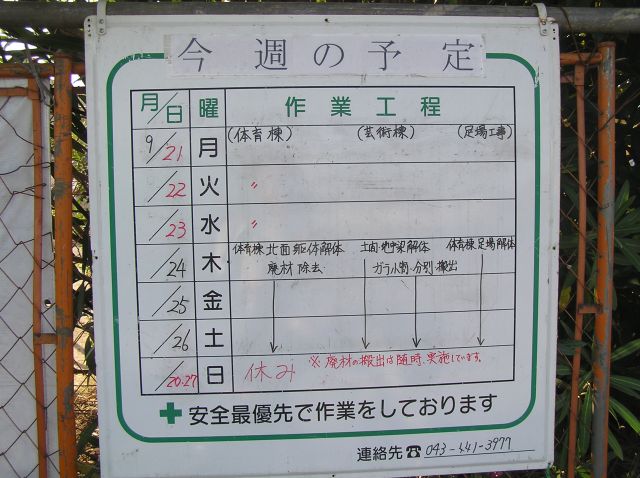 今週の予定
月/日 曜 作業工程
9/21 月 (体育棟) (芸術棟) (足場工事)
/22 火 〃
/23 水 〃
/24 木 体育棟北面躯体解体 土間・地中梁解体 体育棟足場解体
廃材除去 ガラ小割・分別・搬出
/25 金
/26 土
/20.27 日 休み ※廃材の搬出は随時、実施しています。
安全最優先で作業をしております
連絡先☎ 043-441-3977